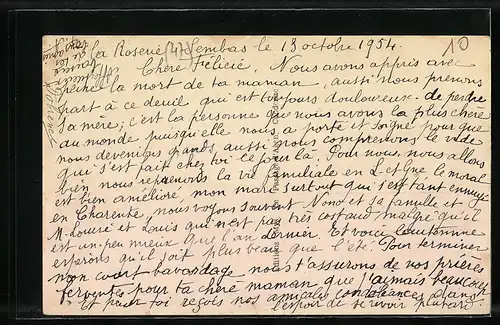 La Roseraie (47) Sembas le 13 octobre 1954.
Chère Félicie. Nous avons appris avec
peine la mort de ta maman, aussi nous prenons
part à ce deuil qui est toujours douloureux de perdre
sa mère; c'est la personne que nous avons la plus chère
au monde puisqu'elle nous a porté et soigné pour que
nous devenions grands, aussi nous comprenons le vide
qui s'est fait chez toi ce jour là. Pour nous, nous allons
bien nous reprenons la vie familiale en L-et-Gne le moral
est bien amélioré, mon mari surtout qui s'est tant ennuyé
en Charente, nous voyons souvent Nono et sa famille et
M. et Louis qui n'est pas très costaud malgré qu'il
est un peu mieux que l'an dernier. Et voici l'automne
espérons qu'il soit plus beau que l'été. Pour terminer
mon court bavardage nous t'assurons de nos prières
ferventes pour ta chère maman que j'aimais beaucoup
Et pour toi reçois nos amicales condoléances dans
l'espoir de te revoir plus tard.
10